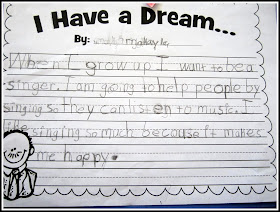 I Have a Dream...
By:
When I grow up I want to be a
singer. I am going to help people by
singing so they can listen to music. I
like singing so much because it makes
me happy.